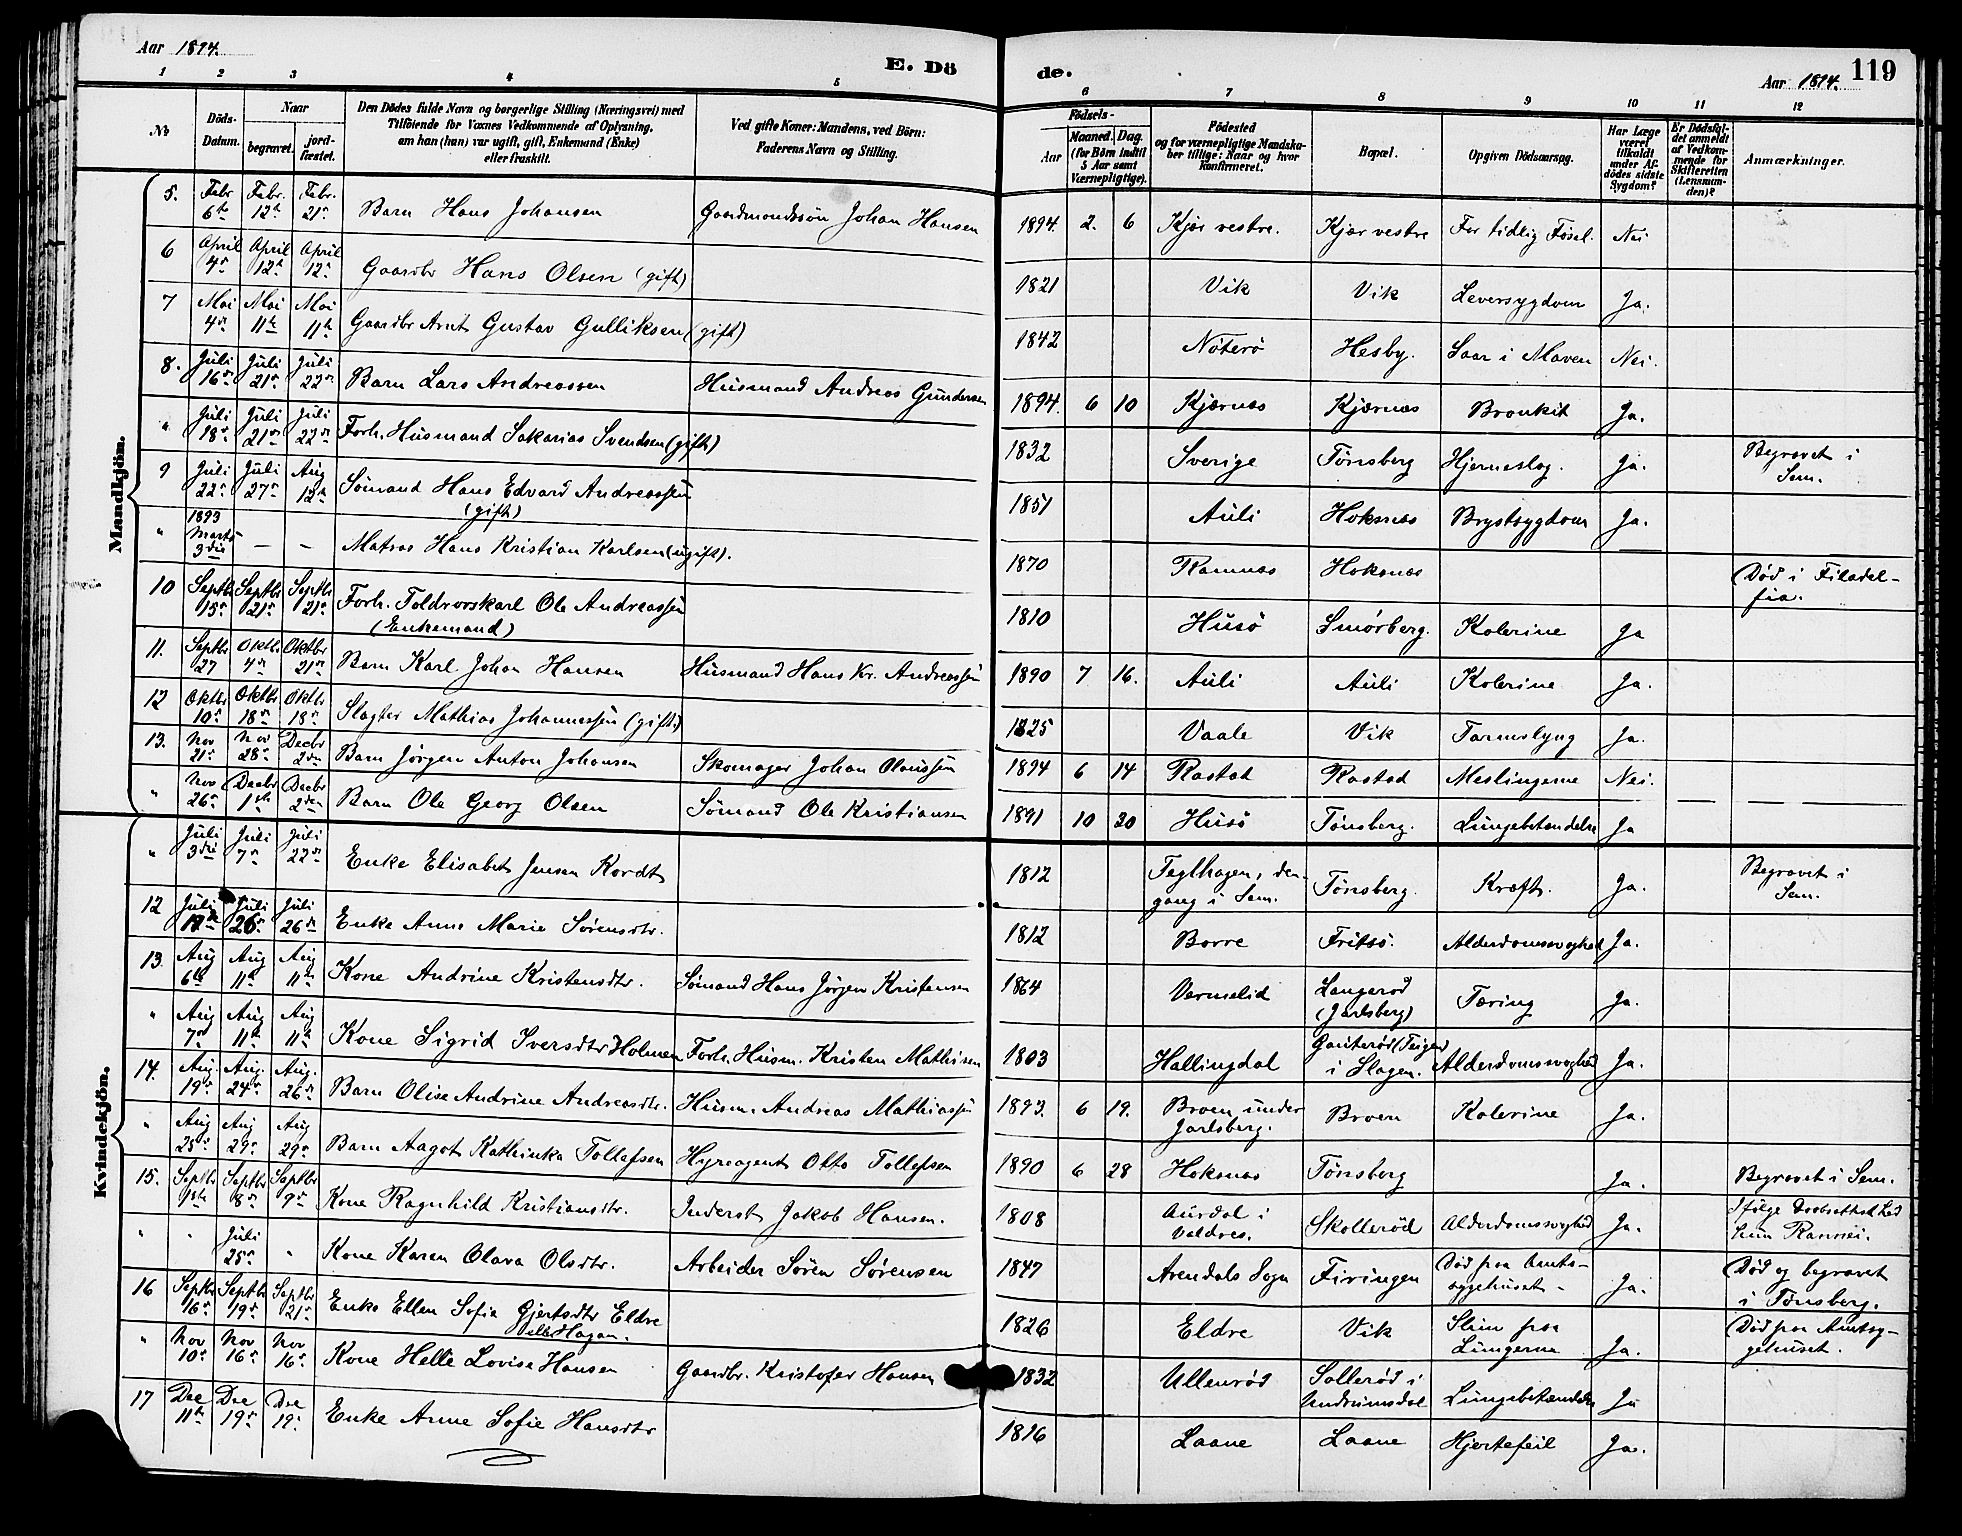 Aar 1894.
E. Dö de.
Aar 1894. 119
1 2 3 4 5 6 7 8 9 10 11 12
No
Döds-Datum.
Naar
begravet.
jord-fæstet.
Den Dödes fulde Navn og borgerlige Stilling (Næringsvei) med
Tilföiende for Voxnes Vedkommende af Oplysning,
om han (hun) var ugift, gift, Enkemand (Enke)
eller fraskilt.
Ved gifte Koner: Mandens, ved Börn:
Faderens Navn og Stilling.
Födsels-
Aar
Maaned. Dag.
(for Börn indtil
5 Aar samt
Værnepligtige).
Födested
og for værnepligtige Mandska-
ber tillige: Naar og hvor
konfirmeret.
Bopæl.
Opgiven Dödsaarsag.
Har Læge
været
tilkaldt
under Af-
dödes sidste
Sygdom?
Er Dödsfal-
det anmeldt
af Vedkom-
mende for
Skifteretten
(Lensman-
den)?
Anmærkninger.
Mandkjön.
5. Febr 6te Febr. 12te Febr. 21de Barn Hans Johansen Gaardmandssön Johan Hansen 1894. 2. 6 Kjær vestre. Kjær vestre For tidlig Fösel. Nei
6 April 4de April 12te April 12te Gaardbr Hans Olsen (gift) 1821 Vik Vik Leversygdom Ja.
7 Mai 4de Mai 11te Mai 11te Gaardbr Arnt Gustav Gulliksen (gift) 1842 Nøterø Hesby. Saar i Maven Nei.
8. Juli 16de Juli 21de Juli 22de Barn Lars Andreassen Husmand Andreas Gundersen 1894. 6 10 Kjærnes Kjærnes Bronkit Ja.
" Juli 18de Juli 21de Juli 22de Forh. Husmand Sakarias Svendsen (gift) 1832 Sverige Tønsberg Hjerneslag. Ja. Begravet i Sem.
9 Juli 22de Juli 27de Aug 12te Sømand Hans Edvard Andreassen (gift) 1851 Auli Hoksnes Brystsygdom Ja.
" 1893 Marts 3die — — Matros Hans Kristian Karlsen (ugift). 1870 Ramnes Hoksnes Død i Filadelfia.
10 Septbr 15de Septbr 21de Septbr 21de Forh. Toldrorskarl Ole Andreassen (Enkemand) 1810 Husø Smørberg. Kolerine Ja
11. Septbr 27 Oktbr 4de Oktbr 21de Barn Karl Johan Hansen Husmand Hans Kr. Andreassen 1890 7 16. Auli Auli Kolerine Ja.
12 Oktbr 10de Oktbr 18de Oktbr 18de Slagter Mathias Johannessen (gift.) 1825 Vaale Vik Tarmslyng Ja.
13. Nov 21de Nov 28de Decbr 2den Barn Jørgen Anton Johansen Skomager Johan Olaussen 1894 6 14 Rastad Rastad Meslingerne Nei.
" Nov 26de Decbr 1ste Decbr 2den Barn Ole Georg Olsen Sømand Ole Kristiansen 1891 10 30 Husø Tønsberg. Lungebetændelse Ja
Kvindekjön.
" Juli 3die Juli 7de Juli 22de Enke Elisabet Jensen Kordt 1812 Teglhagen, dengang i Sem. Tønsberg. Kræft. Ja. Begravet i Sem.
12 Juli Juli 26de Juli 26de Enke Anne Marie Sørensdtr. 1812 Borre Fritsø. Alderdomssvaghed Ja.
13. Aug 6te Aug 11te Aug 11te Kone Andrine Kristensdtr. Sømand Hans Jørgen Kristensen 1864 Vermelid Langerød (Jarlsberg) Tæring Ja.
" Aug 7de Aug 11te Aug 11te Kone Sigrid Iversdtr Holmen Forh. Husm. Kristen Mathisen 1803 Hallingdal Gauterød (Teigen) i Slagen. Alderdomssvaghed Ja.
14. Aug. 19de Aug. 24de Aug. 26de Barn Olise Andrine Andreasdtr. Husm. Andreas Mathiassen 1893. 6 19. Broen, under Jarlsberg. Broen Kolerine Ja.
" Aug 25de Aug 29de Aug 29de Barn Aagot Kathinka Tollefsen Hyreagent Otto Tollefsen 1890 6 28 Hoksnes Tønsberg Ja. Begravet i Sem.
15. Septbr 1ste Septbr 8de Septbr 9de Kone Ragnhild Kristiansdtr. Inderst Jakob Hansen. 1808 Aurdal i Valdres. Skallerød Alderdomssvaghed Ja. Ifølge
" " Juli 25de " Kone Karen Olava Olsdtr. Arbeider Sören Sørensen 1847 Arendals Sogn Firingen Død paa Amtssygehuset - Ja. Død og begravet i Tønsberg.
16 Septbr 16de Septbr 19de Septbr 21de Enke Ellen Sofie Gjertsdtr Eldre eller Hagan. 1826 Eldre Vik Slim paa Lungerne Ja. Død paa Amtsygehuset.
" Nov 10de Nov 16de Nov 16de Kone Helle Lovise Hansen Gaardbr. Kristofer Hansen 1832 Ullenrød Sollerød i Undrumsdal Lungebetændelse Ja
17 Dec 11te Dec 19de Dec 19de Enke Anne Sofie Hansdtr 1816 Laane Laane Hjertefeil Ja.